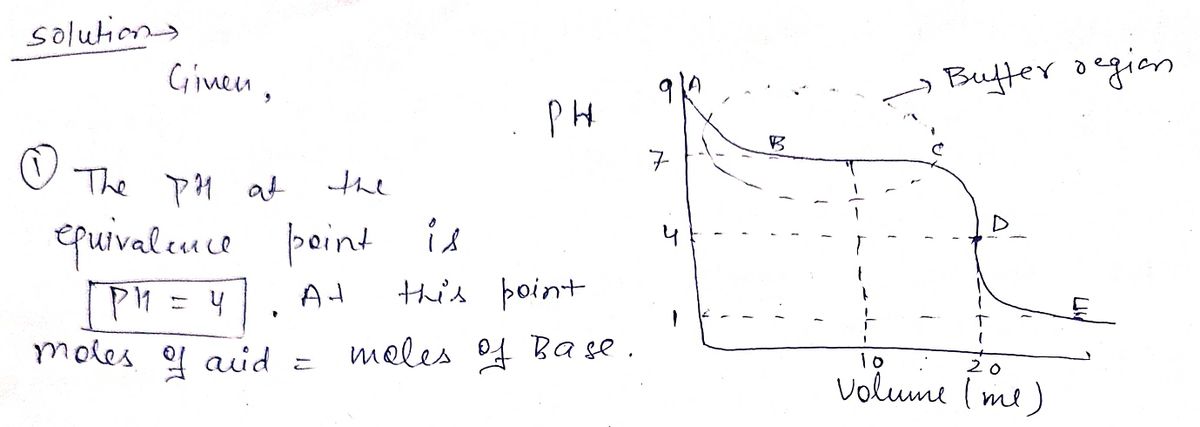 solution →
Given,
① The PH at the
equivalence point is
PH = 4. At this point
moles of acid = moles of Base.
PH
→ Buffer region
9 A
B
7
C
4
D
1
E
10 20
Volume (ml)